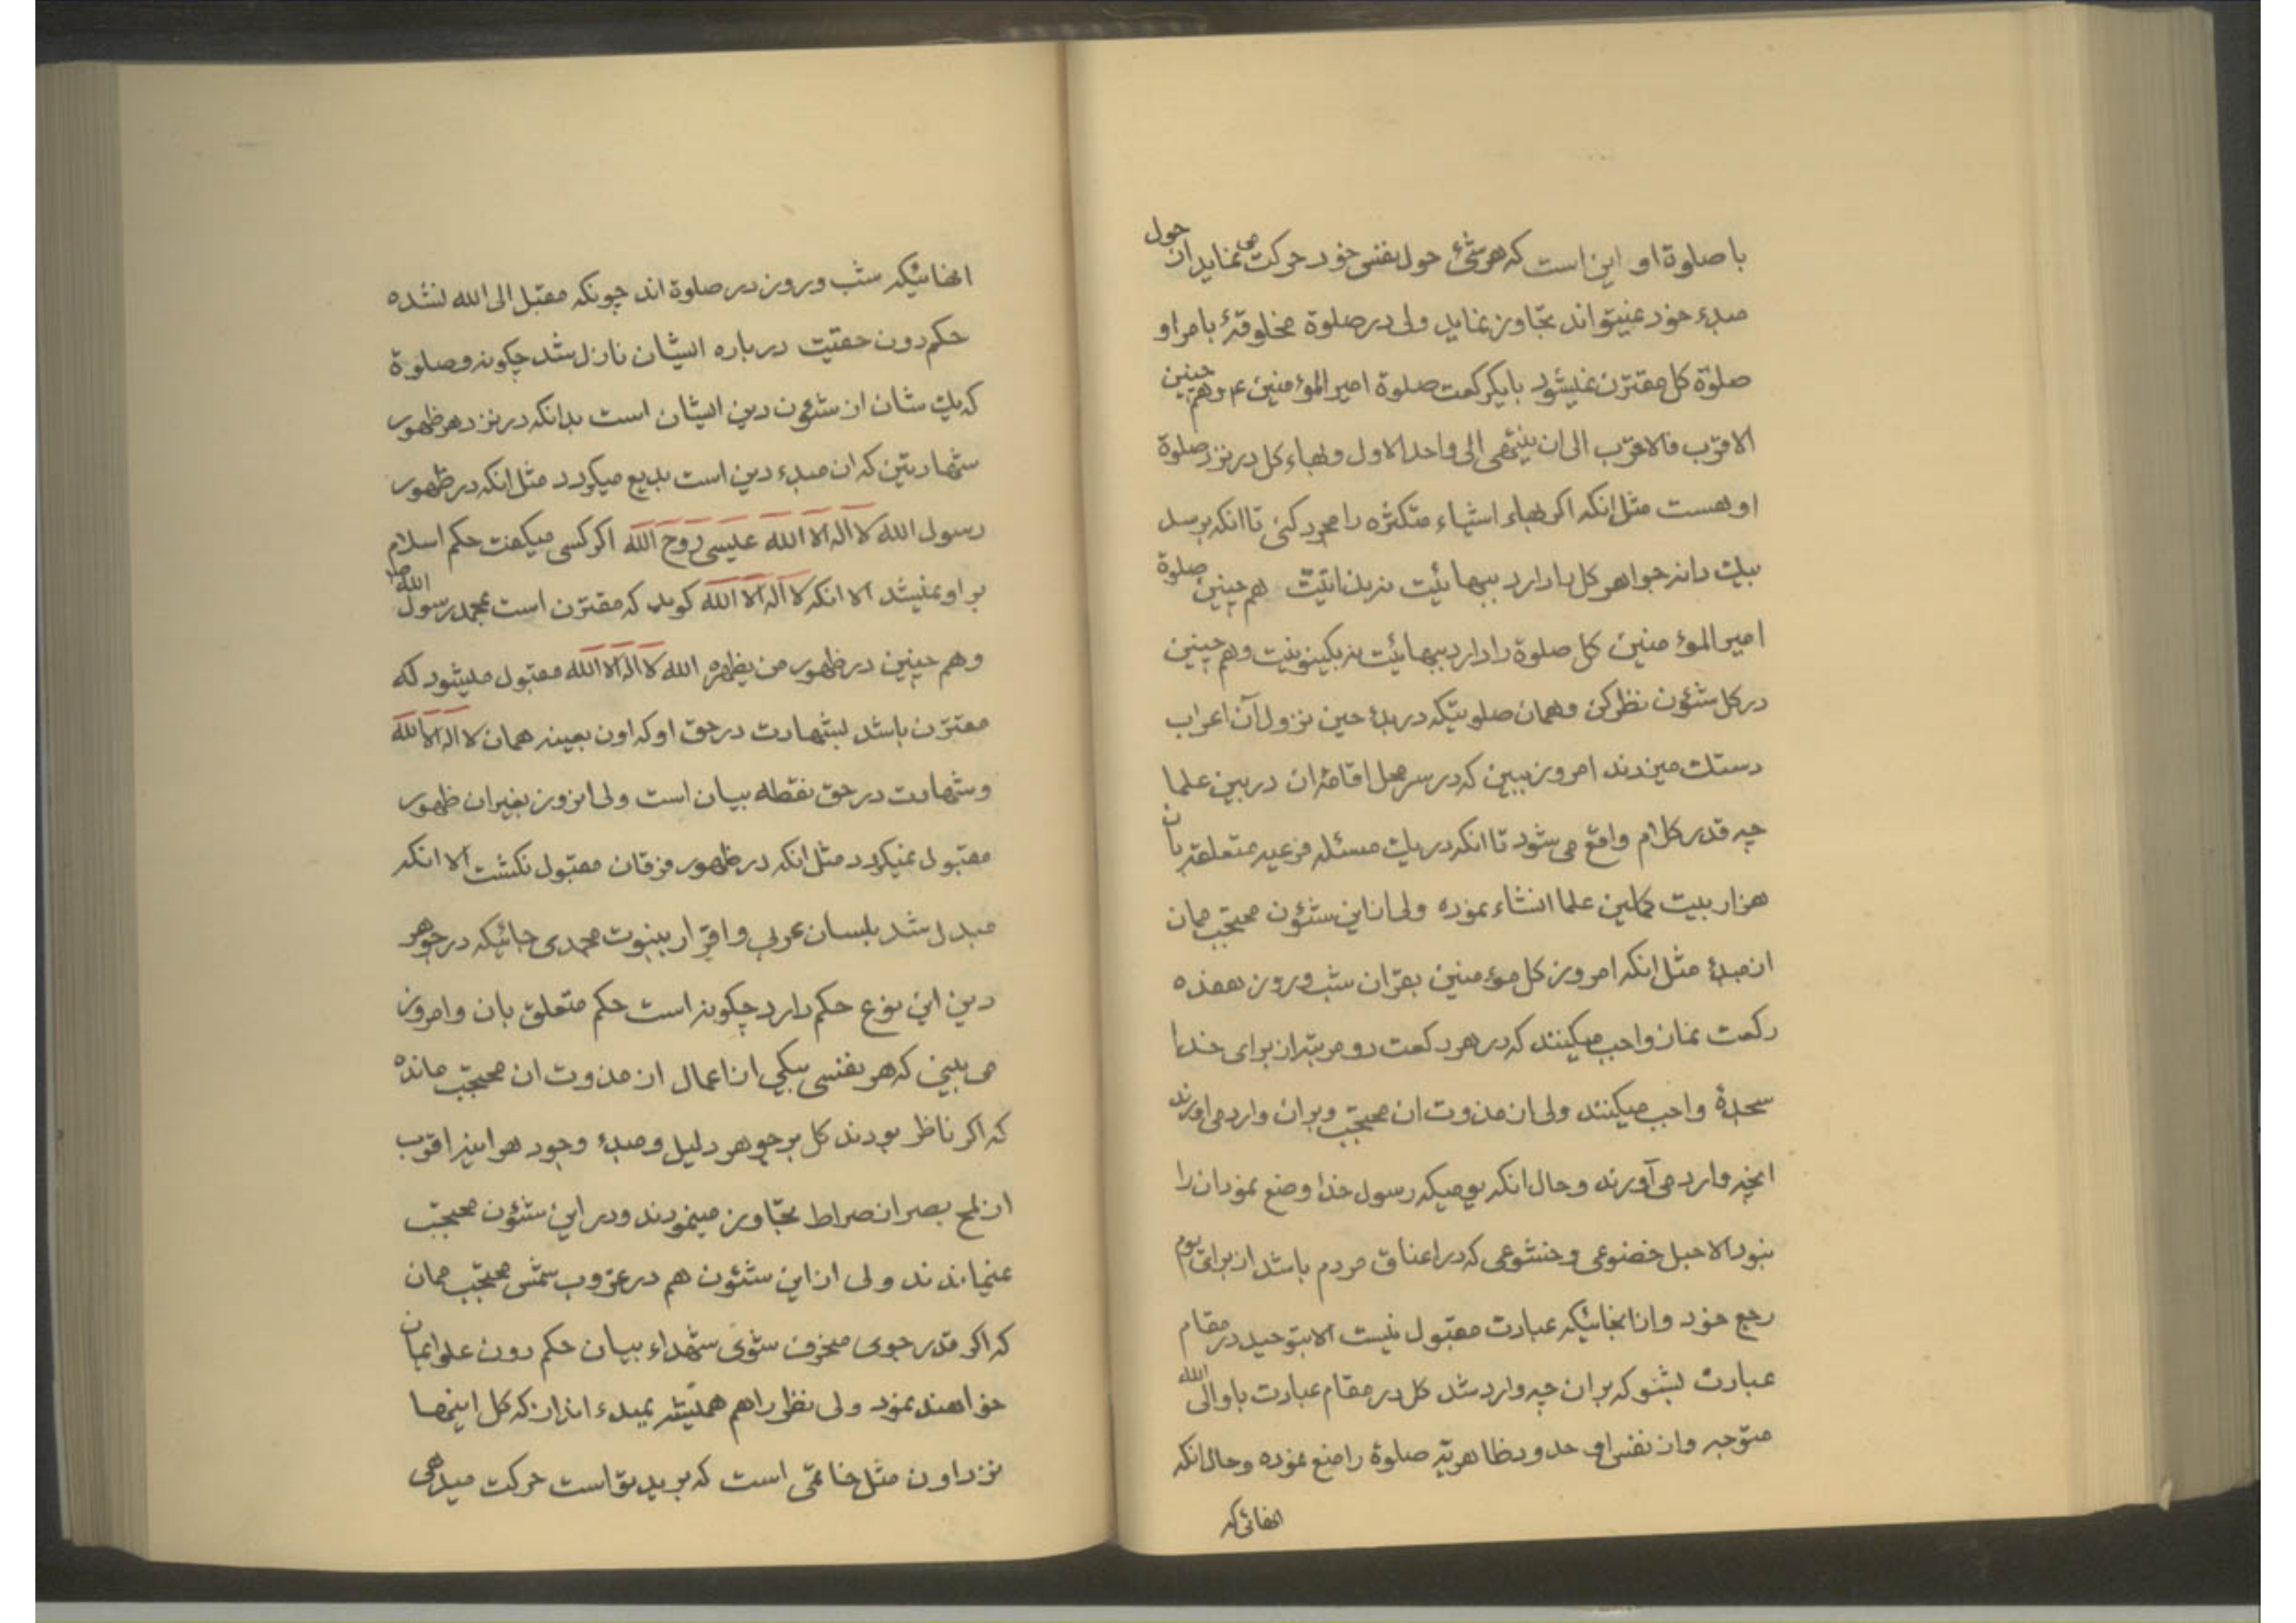 با صلوة او این است که هر شیئ حول نفس خود حرکت می نماید از حول
مبدء خود نمیتواند تجاوز نماید ولی در صلوة مخلوقهٔ بامر او
صلوة کل مقترن نمیشود بایکرکعت صلوة امیر المؤمنین ع و هم چنین
الاقرب فالاقرب الی ان ینتهی الی واحد الاول و بهاء کل در نزد صلوة
او هست مثل انکه اکر بهاء اشیاء متکثره را مجرد کنی تا انکه برسد
بیک دانه جواهر کل را دارد ببهائیت نه بذاتیت هم چنین صلوة
امیر المؤمنین کل صلوة را دارد ببهائیت نه بکینونیت و هم چنین
در کل شئون نظر کن و همان صلوتیکه در بدء حین نزول آن اعراب
دستک میزدند امروز ببین که در سر محل اقامهٔ ان در بین علما
چه قدر کلام واقع می شود تا انکه در یک مسئله فرعیه متعلقه بان
هزار بیت کاملین علما انشاء نموده ولی از این شئون محتجب ممان
از مبدء مثل انکه امروز کل مؤمنین بقران شب و روز هفده
رکعت نماز واجب میکینند که در هر رکعت دو مرتبه از برای خدا
سجدهٔ واجب میکینند ولی از مذوت ان محتجب و بر ان وارد می اورند
انچه وارد می آورند و حال انکه یومیکه رسول خدا وضع نمود ان را
نبود الا حبل خضوعی و خشوعی که در اعناق مردم باشد از برای یوم
رجع خود و از انجائیکه عبادت مقبول نیست الا بتوحید در مقام
عبادت بشنو که بر ان چه وارد شد کل در مقام عبادت باو الی الله
متوجه و از نفس او حدود ظاهریهٔ صلوة را منع نموده و حال انکه
انهائی که
انهائیکه شب و روز در صلوة اند چونکه مقبل الی الله نشده
حکم دون حقیت درباره ایشان نازل شد چکونه و صلوة
که یک شان از شئون دین ایشان است بدانکه در نزد هر ظهور
شهادتین که ان مبدء دین است بدیع میکردد مثل انکه در ظهور
رسول الله لا اله الا الله عیسی روح الله اکر کسی میکفت حکم اسلام
بر او نمیشد الا انکه لا اله الا الله کوید که مقترن است بمحمد رسول الله ص
و هم چنین در ظهور من یظهره الله لا اله الا الله مقبول میشود که
مقترن باشد بشهادت در حق او که اون بعینه همان لا اله الا الله
و شهادت در حق نقطه بیان است ولی انروز بغیر ان ظهور
مقبول نمیکردد مثل انکه در ظهور فرقان مقبول نکشت الا انکه
مبدل شد بلسان عربی و اقرار بنبوت محمدی جائیکه در جوهر
دین این نوع حکم دارد چکونه است حکم متعلق بان و امروز
می بینی که هر نفسی بیکی از اعمال از مذوت ان محتجب مانده
که اکر ناظر بودند کل بر جوهر دلیل و مبدء وجود هر اینه اقرب
از لمح بصر از صراط تجاوز مینمودند و در این شئون محتجب
نمیماندند ولی از این شئون هم در غروب شمس محتجب ممان
که اکر قدر جوی منحرف شوی شهداء بیان حکم دون علو ایمان
خواهند نمود ولی نظر را هم همیشه بمبدء انداز که کل اینها
نزد اون مثل خاتمی است که بر ید تو است حرکت میدهی